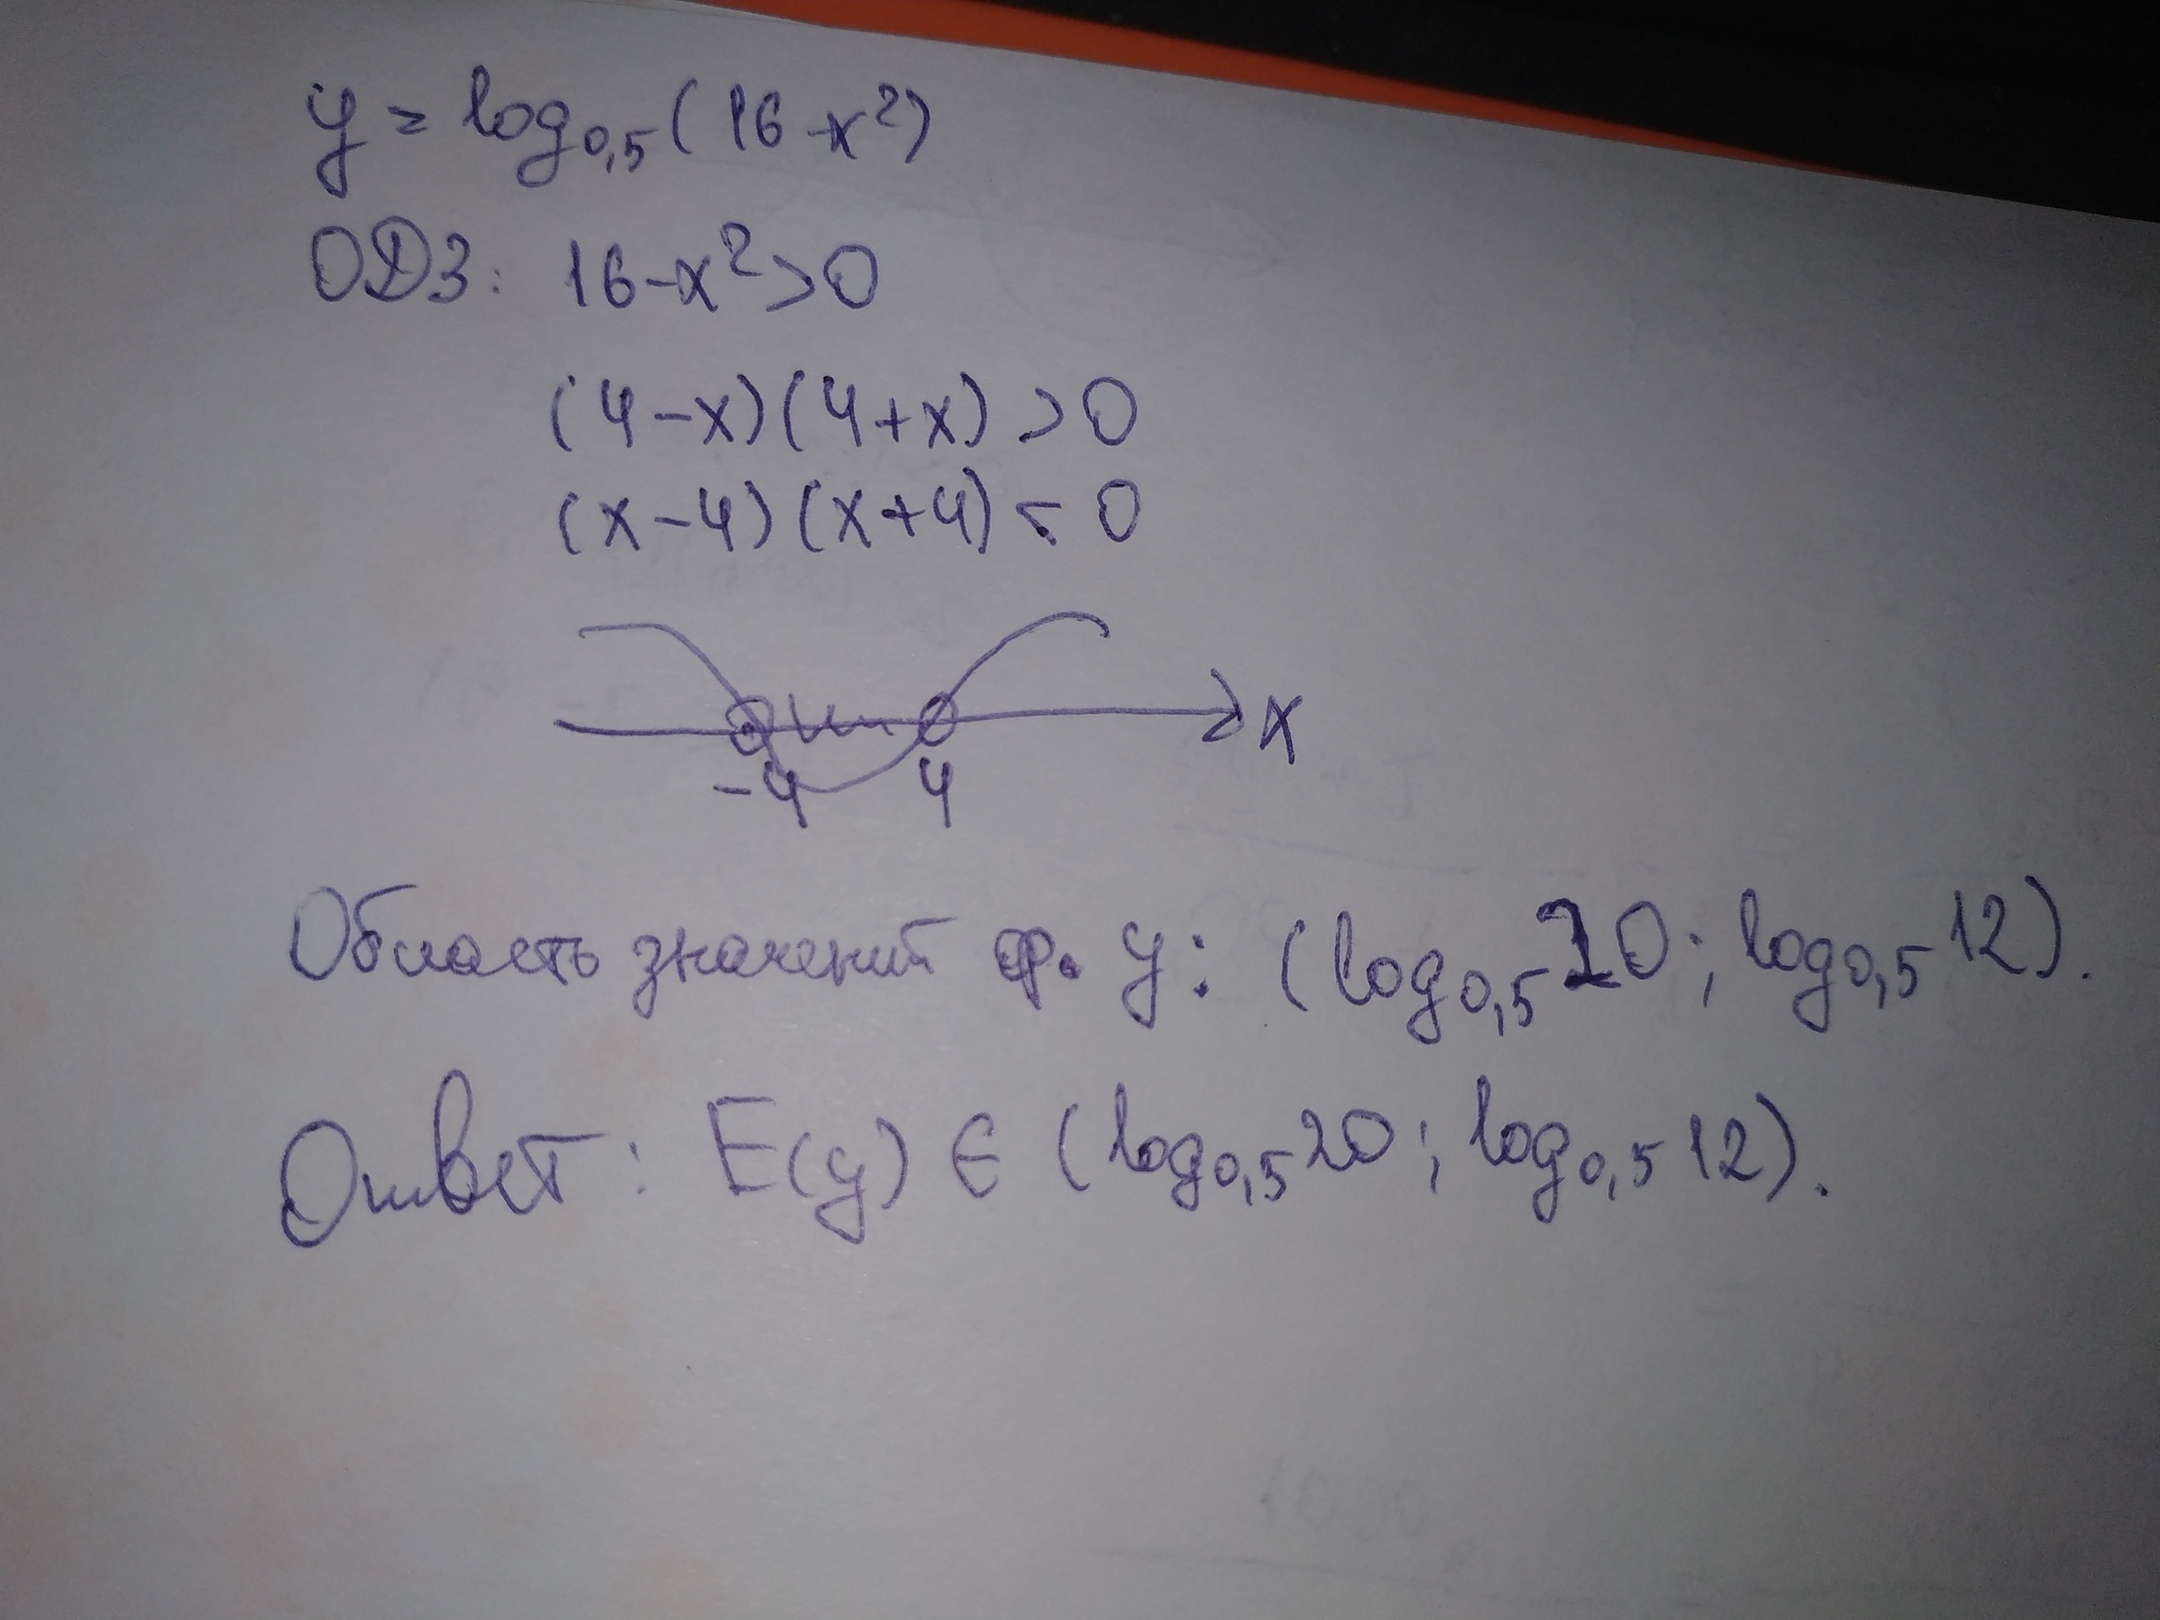 y = log₀,₅(16-x²)
ОДЗ: 16-x²>0
(4-x)(4+x)>0
(x-4)(x+4)=0
x
-4 4
Область значений ф. y: (log₀,₅20; log₀,₅12).
Ответ: E(y) ∈ (log₀,₅20; log₀,₅12).